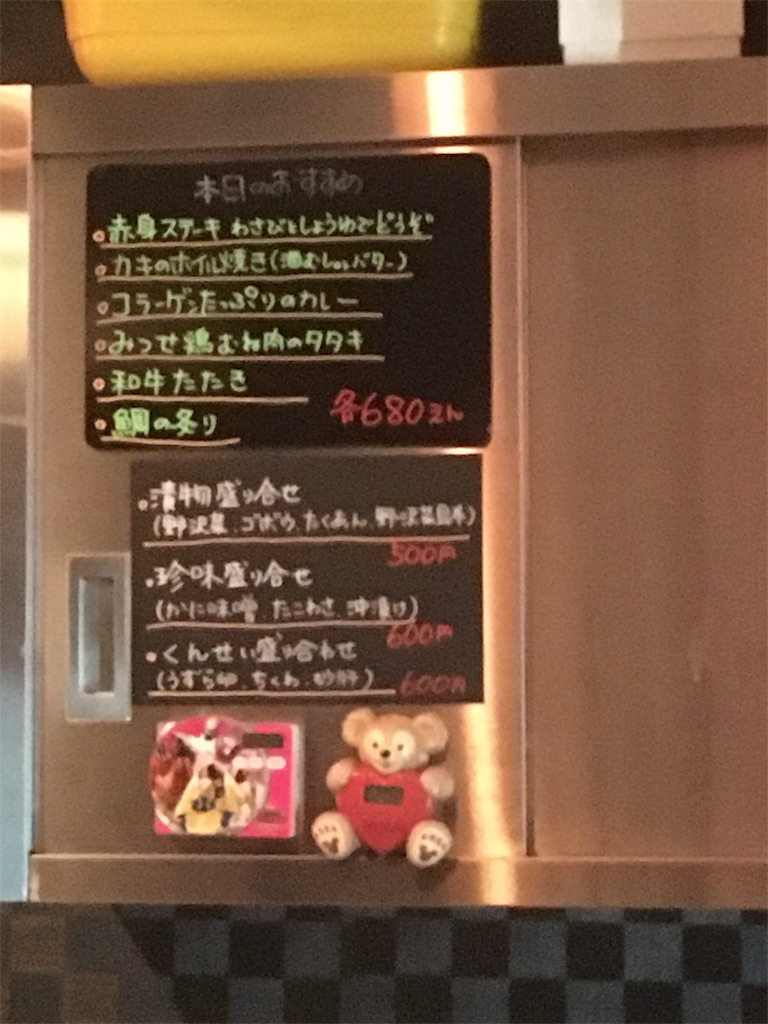 本日のおすすめ
赤身ステーキ わさびとしょうゆでどうぞ
カキのホイル焼き(酒むしorバター)
コラーゲンたっぷりのカレー
みつせ鶏むね肉のタタキ
和牛たたき
各680えん
鯛の炙り
漬物盛り合せ
(野沢菜、ゴボウ、たくあん、野沢菜昆布)
500円
珍味盛り合せ
(かに味噌、たこわさ、沖漬け)
600円
くんせい盛り合わせ
(うずら卵、ちくわ、砂肝)
600円